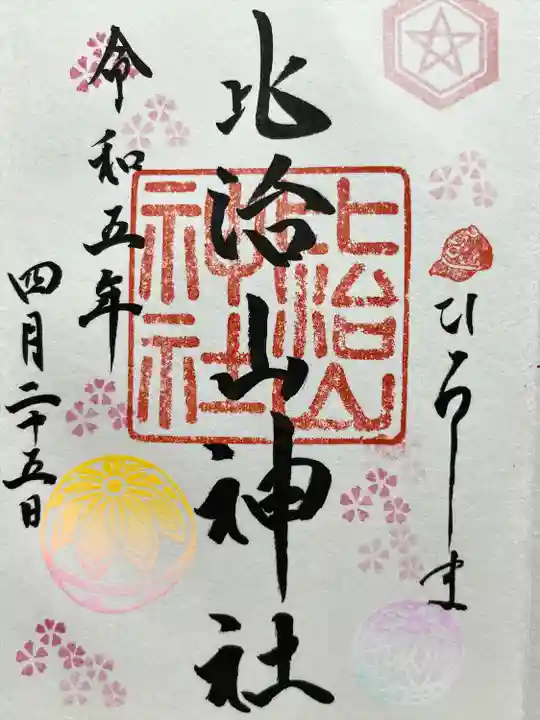 ひろしま
比治山神社
比治山
神社
令和五年
四月二十五日